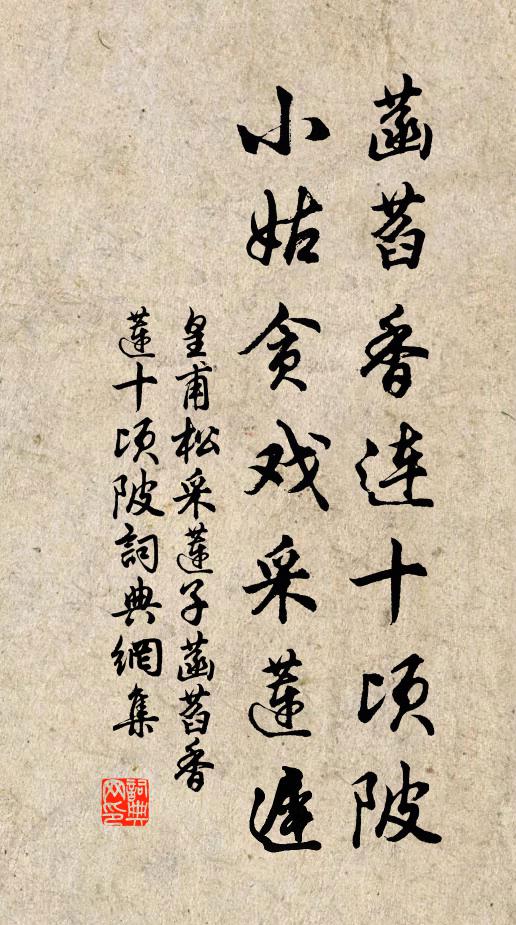 菡萏香连十顷陂
小姑贪戏采莲迟
皇甫松采蓮子菡萏香
蓮十顷陂詞典網集
詞典
网印